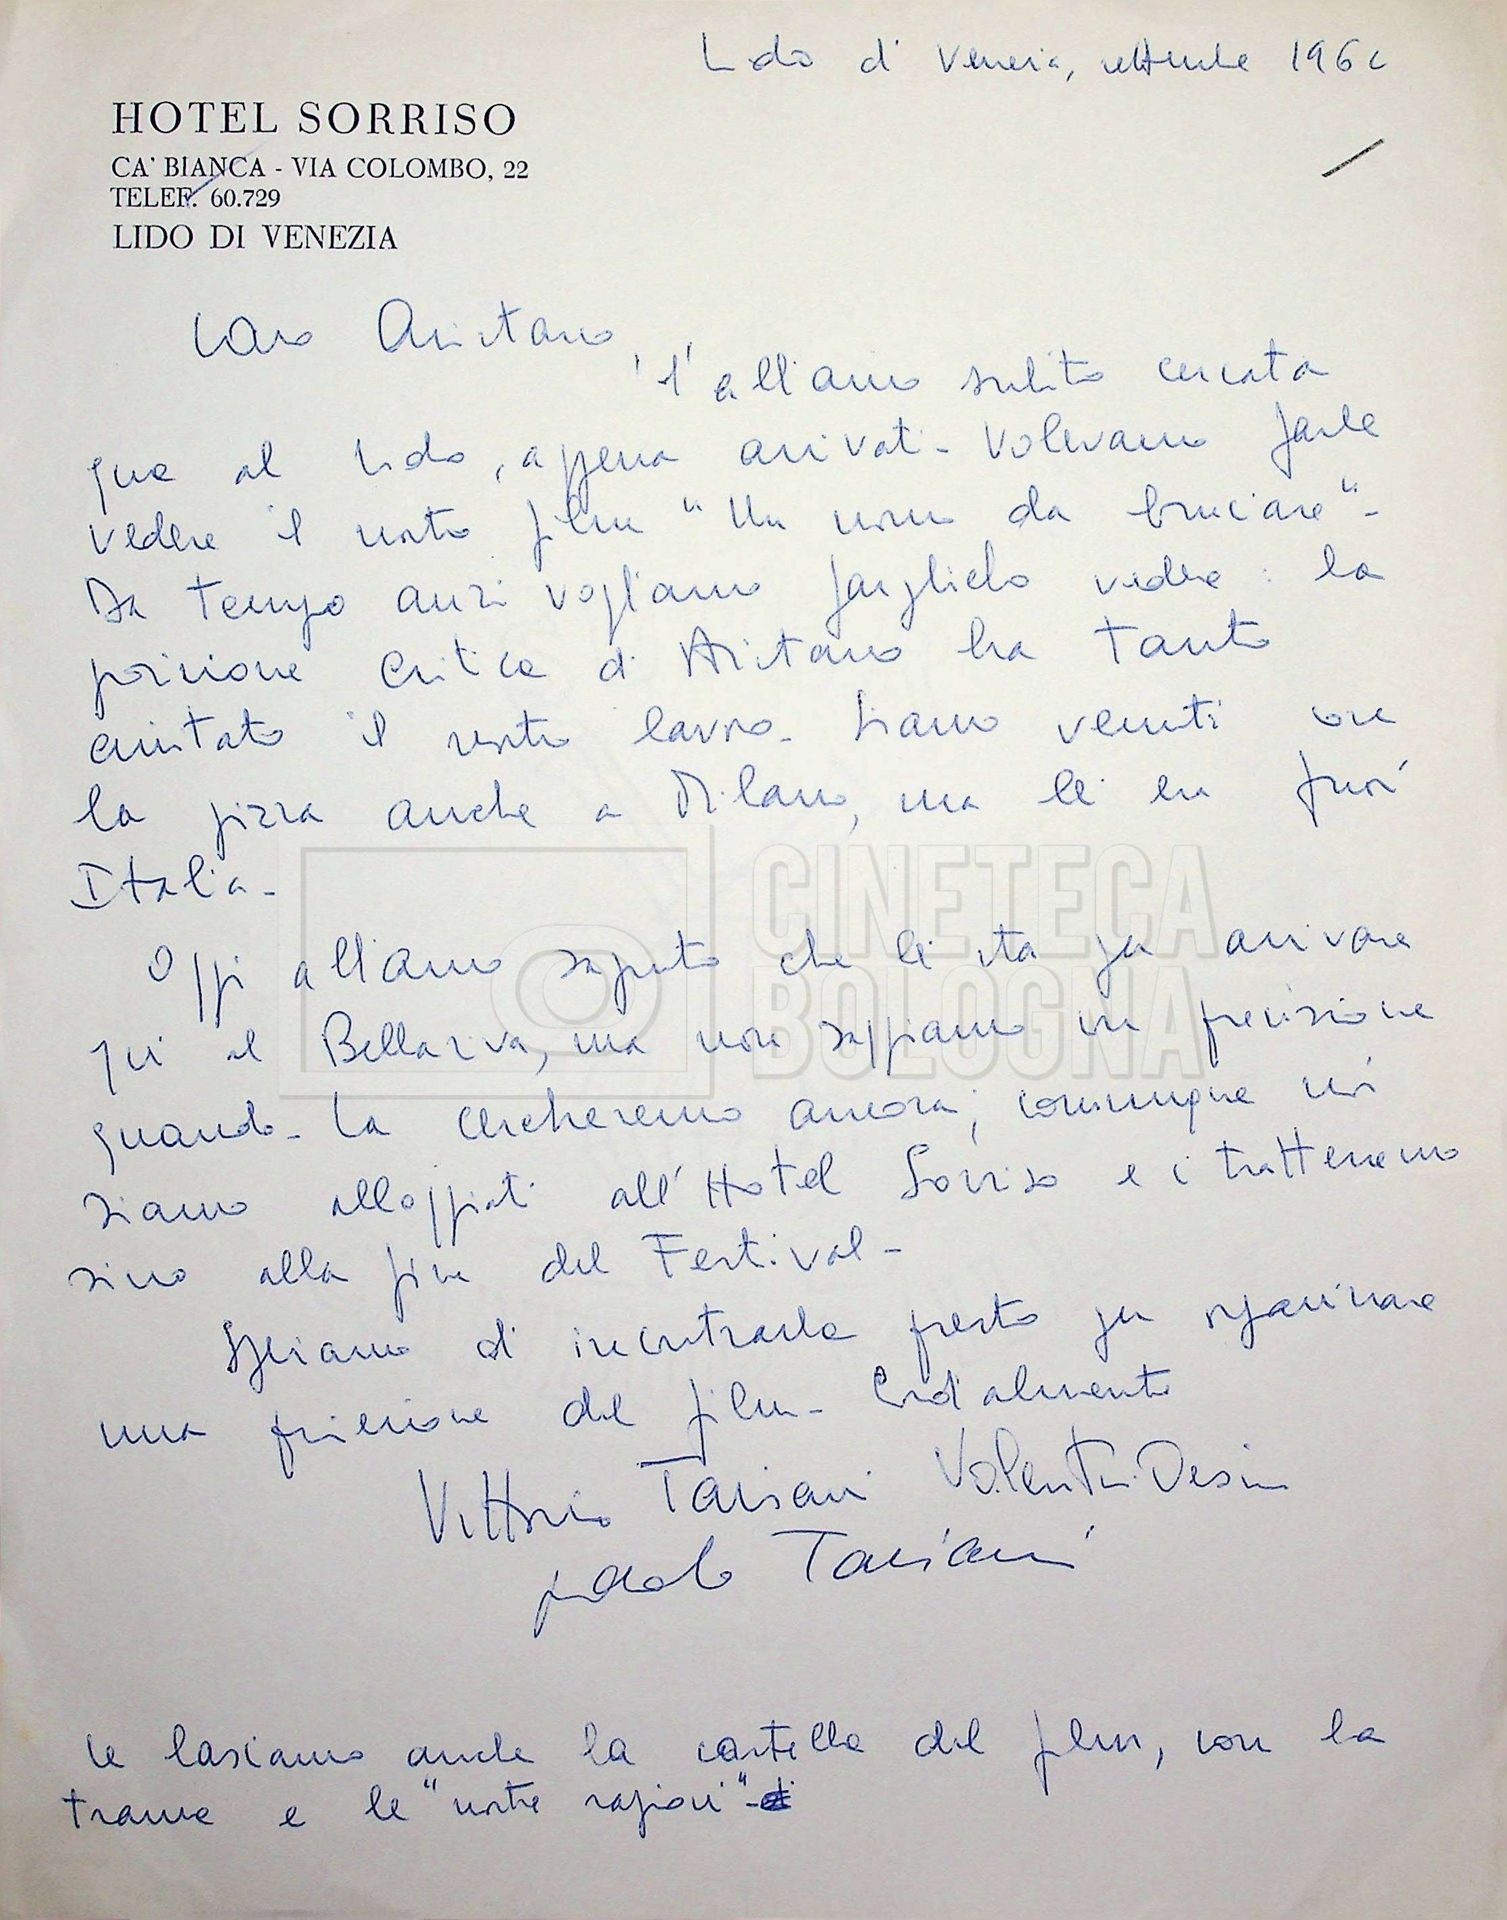 Lido di Venezia, settembre 196
HOTEL SORRISO
CA' BIANCA - VIA COLOMBO, 22
TELEF. 60.729
LIDO DI VENEZIA
Caro Aristarco,
l'abbiamo subito cercata
qua al Lido, appena arrivati - Volevamo farle
vedere il nostro film "Un uomo da bruciare" -
Da tempo anzi vogliamo farglielo vedere : la
posizione critica di Aristarco ha tanto
aiutato il nostro lavoro - Siamo venuti con
la pizza anche a Milano, ma lei era fuori
Italia -
Oggi abbiamo saputo che lei sta per arrivare
qui al Bellariva, ma non sappiamo con precisione
quando - La cercheremo ancora; comunque noi
siamo alloggiati all'Hotel Sorriso e ci tratterremo
sino alla fine del Festival -
Speriamo di incontrarla presto per organizzare
una proiezione del film - Cordialmente
Vittorio Taviani Valentino Orsini
paolo Taviani
Le lasciamo anche la cartella del film, con la
trama e le "nostre ragioni" -
CINETECA
BOLOGNA